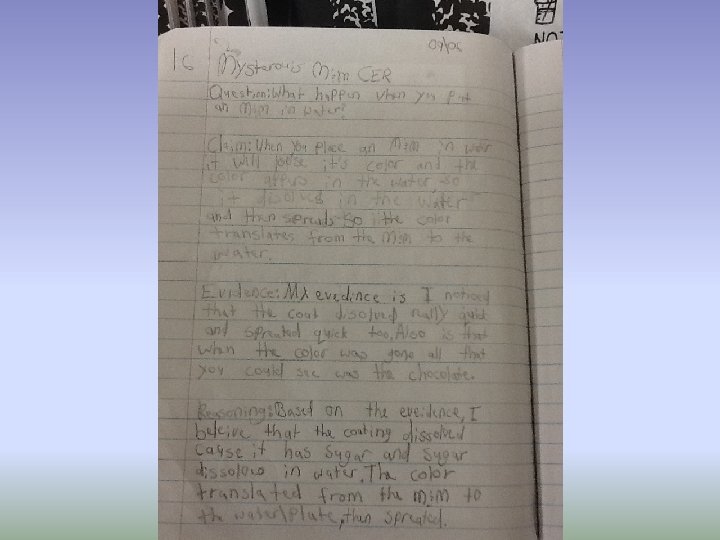 NOT
16 Mysterous M&M CER
Question: What happen when you put
an M&M in water?
Claim: When you place an M&M in watr
it will loose it's color and the
color affers in the water, so
it disolves in the water
and then spreads. So the color
translates from the M&M to the
water.
Evidence: My evedince is I noticed
that the coat disolved really quick
and spreated quick too. Also is that
when the color was gone all that
you could see was the chocolate.
Reasoning: Based on the eveidence, I
beleive that the coating dissolved
cause it has sugar and sugar
dissolows in water. The color
translated from the M&M to
the water/plate, then spreated.